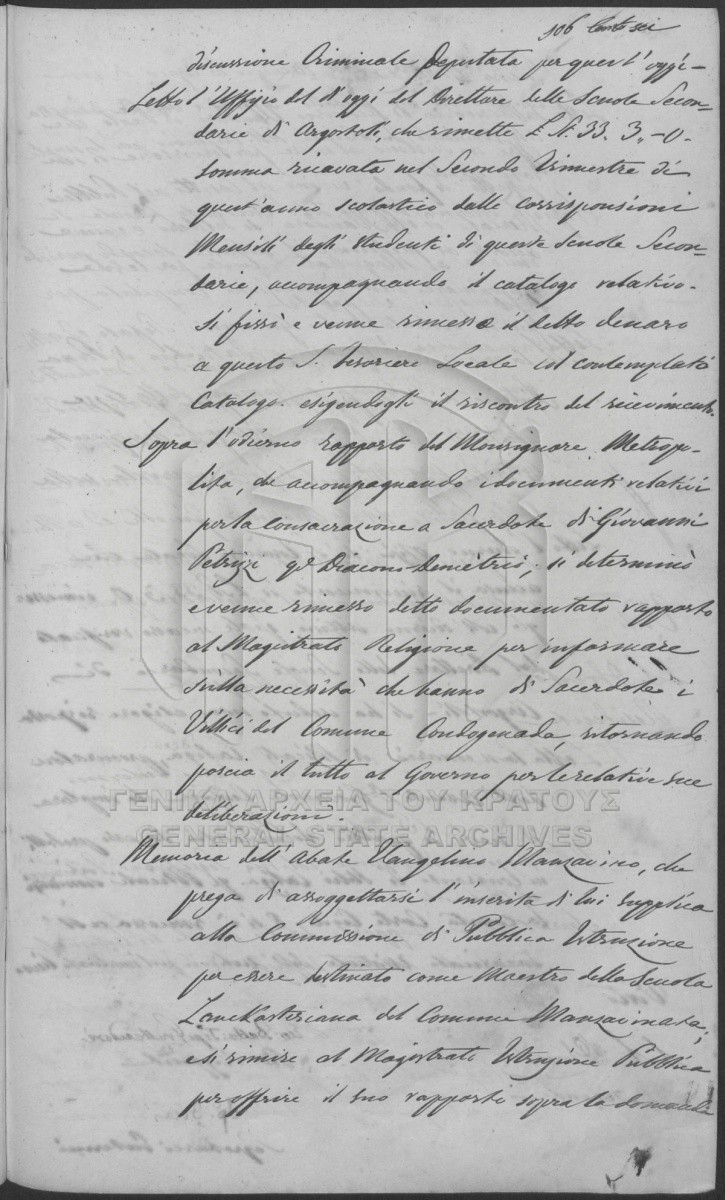 106 Cento sei
discussione Criminale deputata per quest'oggi –
Letto l'Uffizio del d'oggi del Direttore delle Scuole Secon-
darie di Argostoli, che rimette L. St. 33. 3. – 0.
somma ricavata nel Secondo Trimestre di
quest'anno scolastico dalle corrisponsioni
Mensili degli studenti di queste Scuole Secon-
darie, accompagnando il catalogo relativo.
Si fissò e venne rimesso il detto denaro
a questo S. Tesoriere Locale col contemplato
Catalogo. esigendogli il riscontro del ricevimento.
Sopra l'odierno rapporto del Monsignore Metropo-
lita, che accompagnando i documenti relativi
per la Consacrazione a Sacerdote di Giovanni
Petrizzi qm Diacono Demetrio, si determinò
e venne rimesso detto documentato rapporto
al Magistrato Religione per informare
sulla necessità che hanno di Sacerdote i
Villici del Comune Condogenada, ritornando
poscia il tutto al Governo per le relative sue
deliberazioni.
Memoria dell'Abate Vangelino Manzavino, che
prega di assoggettarsi l'inserita di lui supplica
alla Commissione di Pubblica Istruzione
per essere destinato come Maestro della Scuola
Lanckasteriana del Comune Manzavinata;
e si rimise al Magistrato Istruzione Pubblica
per offrire il suo rapporto sopra la domanda
ΓΕΝΙΚΑ ΑΡΧΕΙΑ ΤΟΥ ΚΡΑΤΟΥΣ
GENERAL STATE ARCHIVES